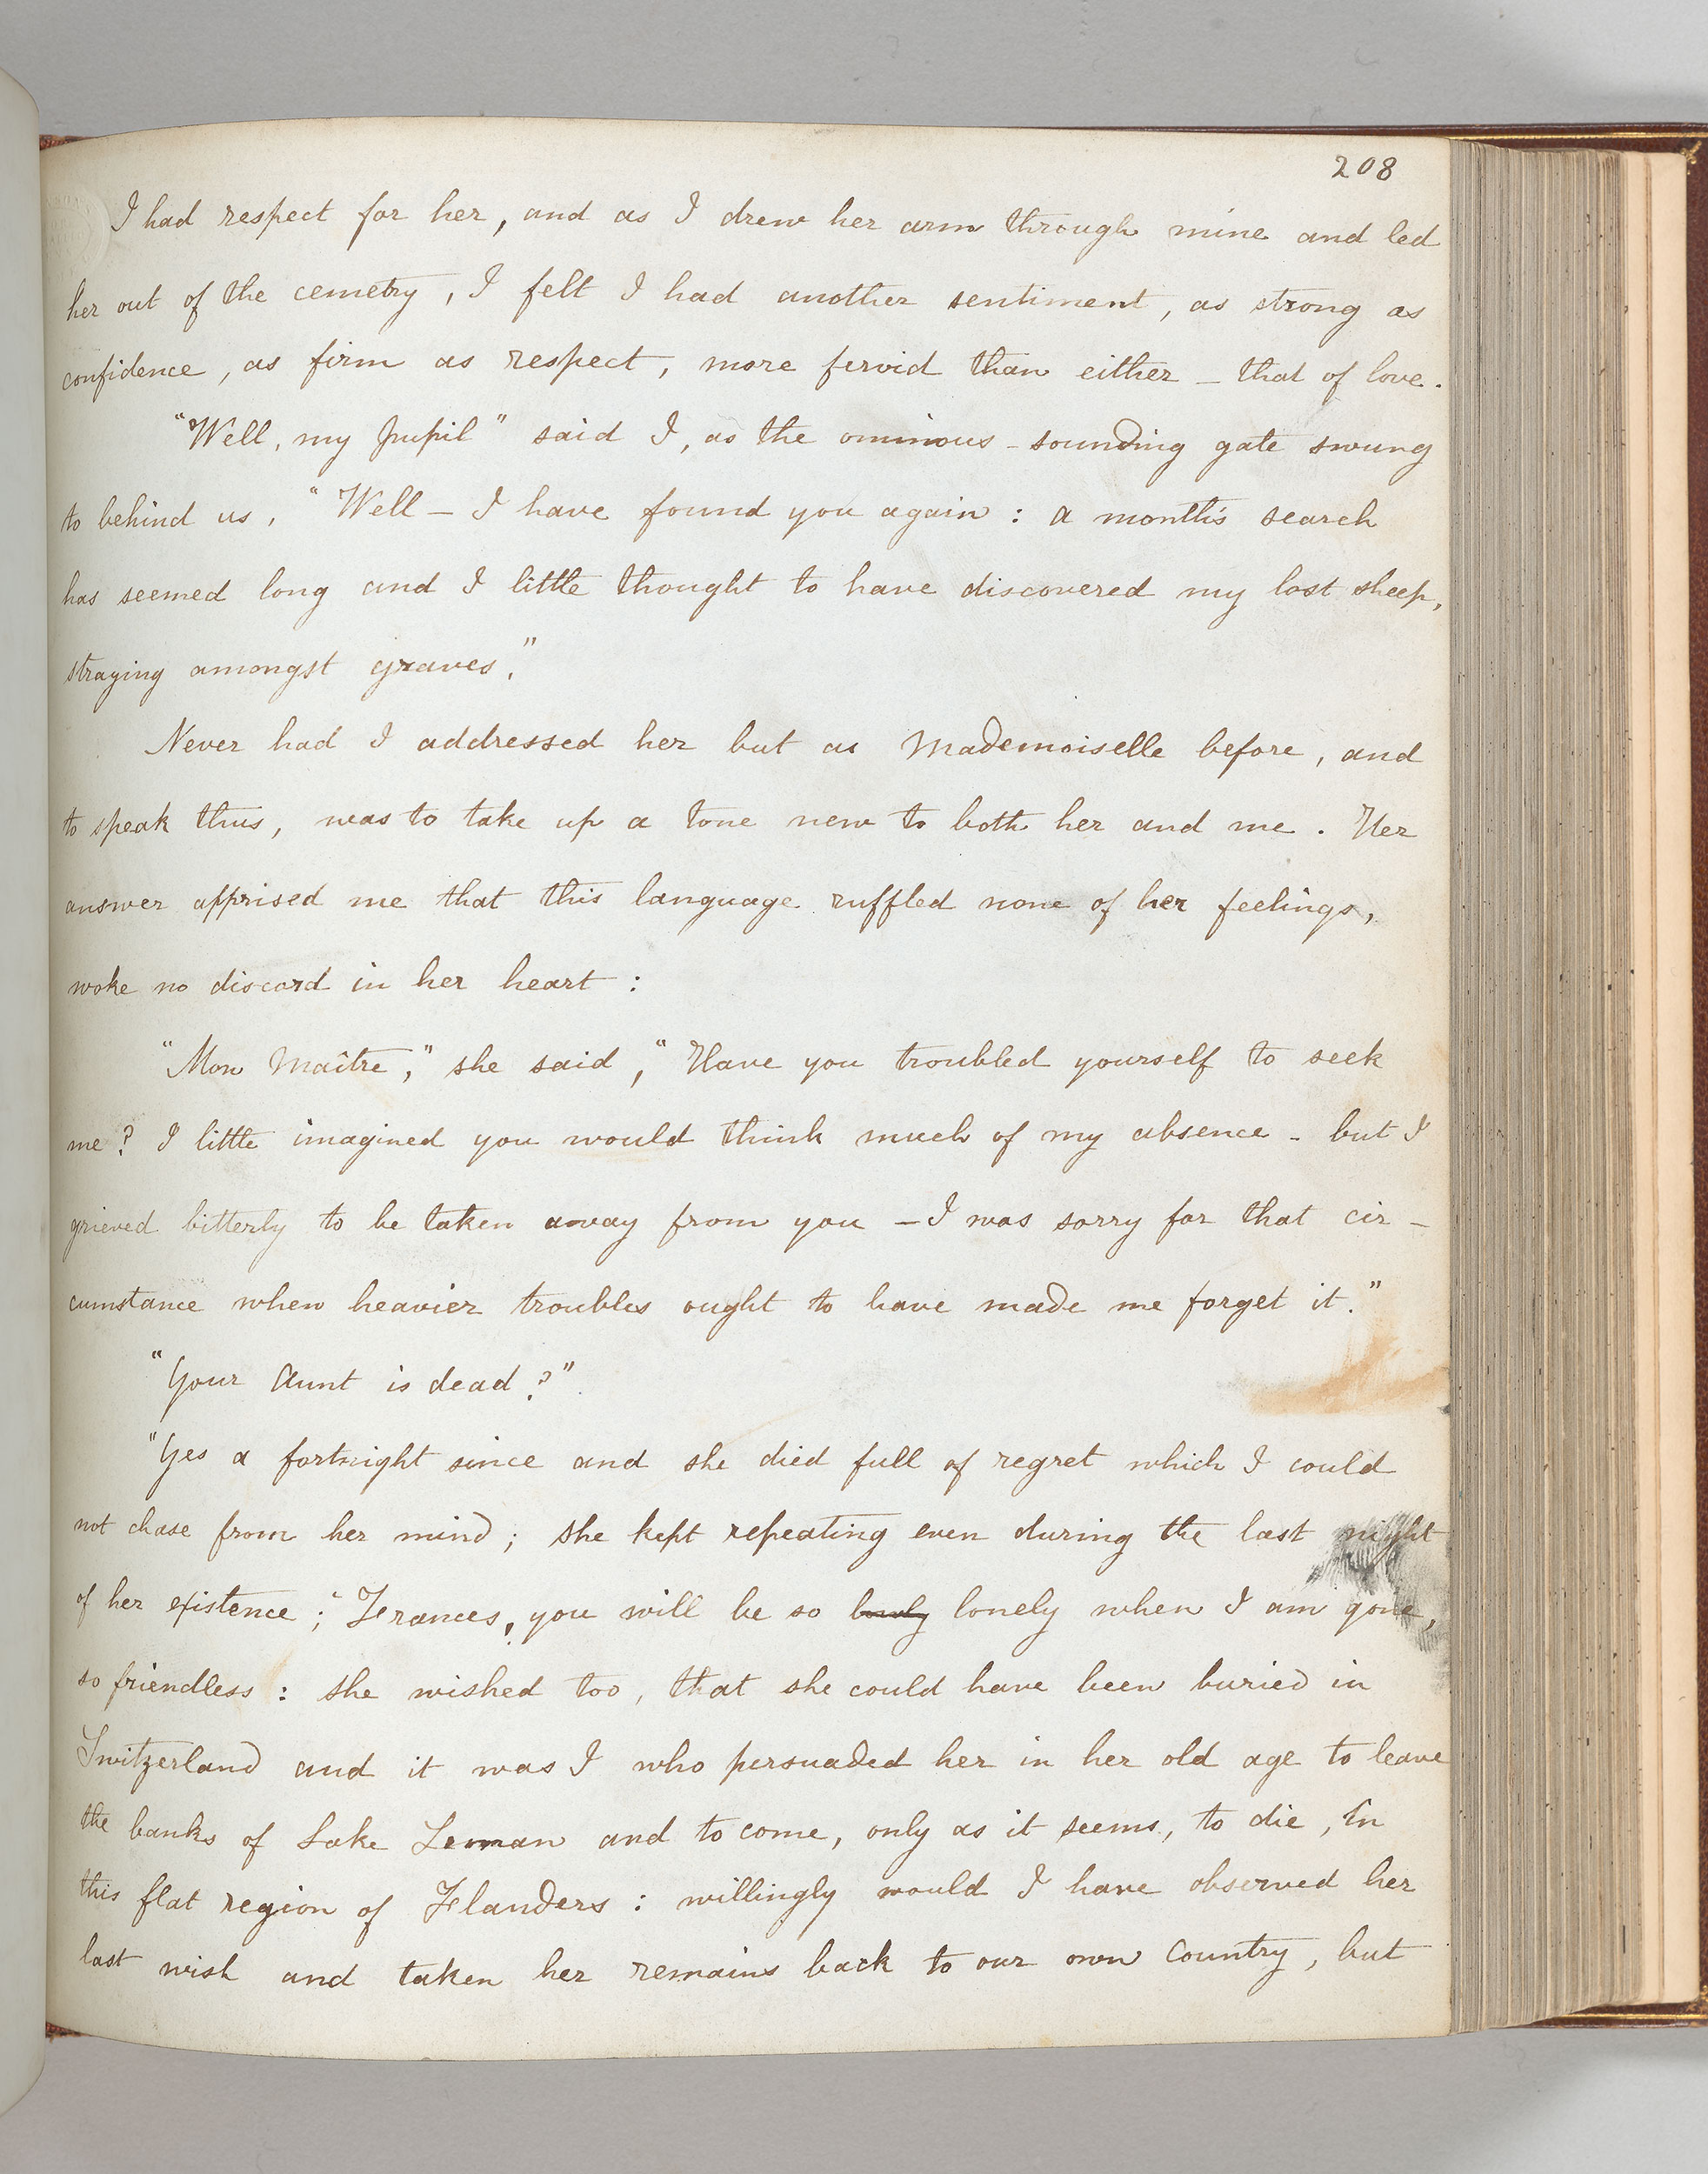 208
I had respect for her, and as I drew her arm through mine and led
her out of the cemetry, I felt I had another sentiment, as strong as
confidence, as firm as respect, more fervid than either – that of love.
"Well, my pupil" said I, as the ominous-sounding gate swung
to behind us, "Well – I have found you again: a month's search
has seemed long and I little thought to have discovered my lost sheep,
straying amongst graves."
Never had I addressed her but as Mademoiselle before, and
to speak thus, was to take up a tone new to both her and me. Her
answer apprised me that this language ruffled none of her feelings,
woke no discord in her heart:
"Mon Maître," she said, "Have you troubled yourself to seek
me? I little imagined you would think much of my absence – but I
grieved bitterly to be taken away from you – I was sorry for that cir-
cumstance when heavier troubles ought to have made me forget it."
"Your Aunt is dead?"
"Yes a fortnight since and she died full of regret which I could
not chase from her mind; she kept repeating even during the last night
of her existence; "Frances, you will be so lonely when I am gone,
so friendless: she wished too, that she could have been buried in
Switzerland and it was I who persuaded her in her old age to leave
the banks of Lake Leman and to come, only as it seems, to die, in
this flat region of Flanders: willingly would I have observed her
last wish and taken her remains back to our own Country, but